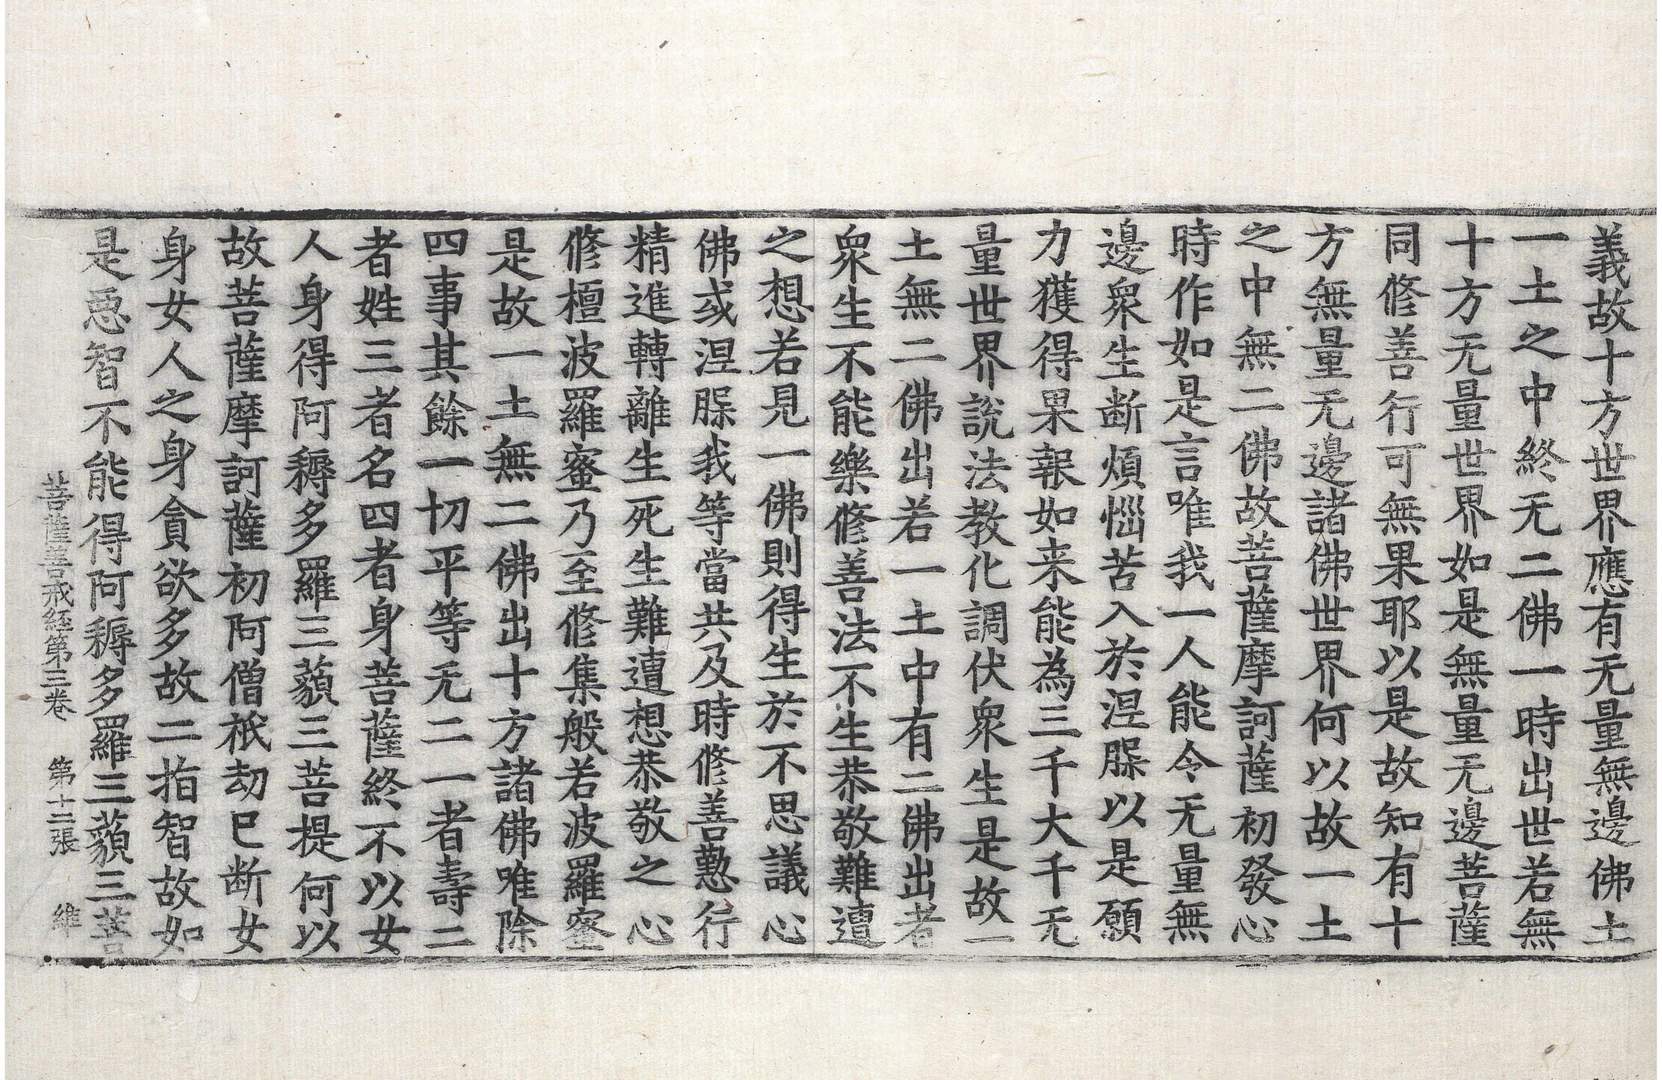 義故十方世界應有无量無邊佛土
一土之中終无二佛一時出世若無
十方无量世界如是無量无邊菩薩
同修善行可無果耶以是故知有十
方無量无邊諸佛世界何以故一土
之中無二佛故菩薩摩訶薩初發心
時作如是言唯我一人能令无量無
邊衆生断煩惱苦入於涅槃以是願
力獲得果報如来能為三千大千无
量世界說法教化調伏衆生是故一
土無二佛出若一土中有二佛出者
衆生不能樂修善法不生恭敬難遭
之想若見一佛則得生於不思議心
佛或涅槃我等當共及時修善懃行
精進轉離生死生難遭想恭敬之心
修檀波羅蜜乃至修集般若波羅蜜
是故一土無二佛出十方諸佛唯除
四事其餘一切平等无二一者壽二
者姓三者名四者身菩薩終不以女
人身得阿耨多羅三藐三菩提何以
故菩薩摩訶薩初阿僧祇劫已断女
身女人之身貪欲多故二指智故如
是惡智不能得阿耨多羅三藐三菩
菩薩善戒経第三卷　第十二張　維